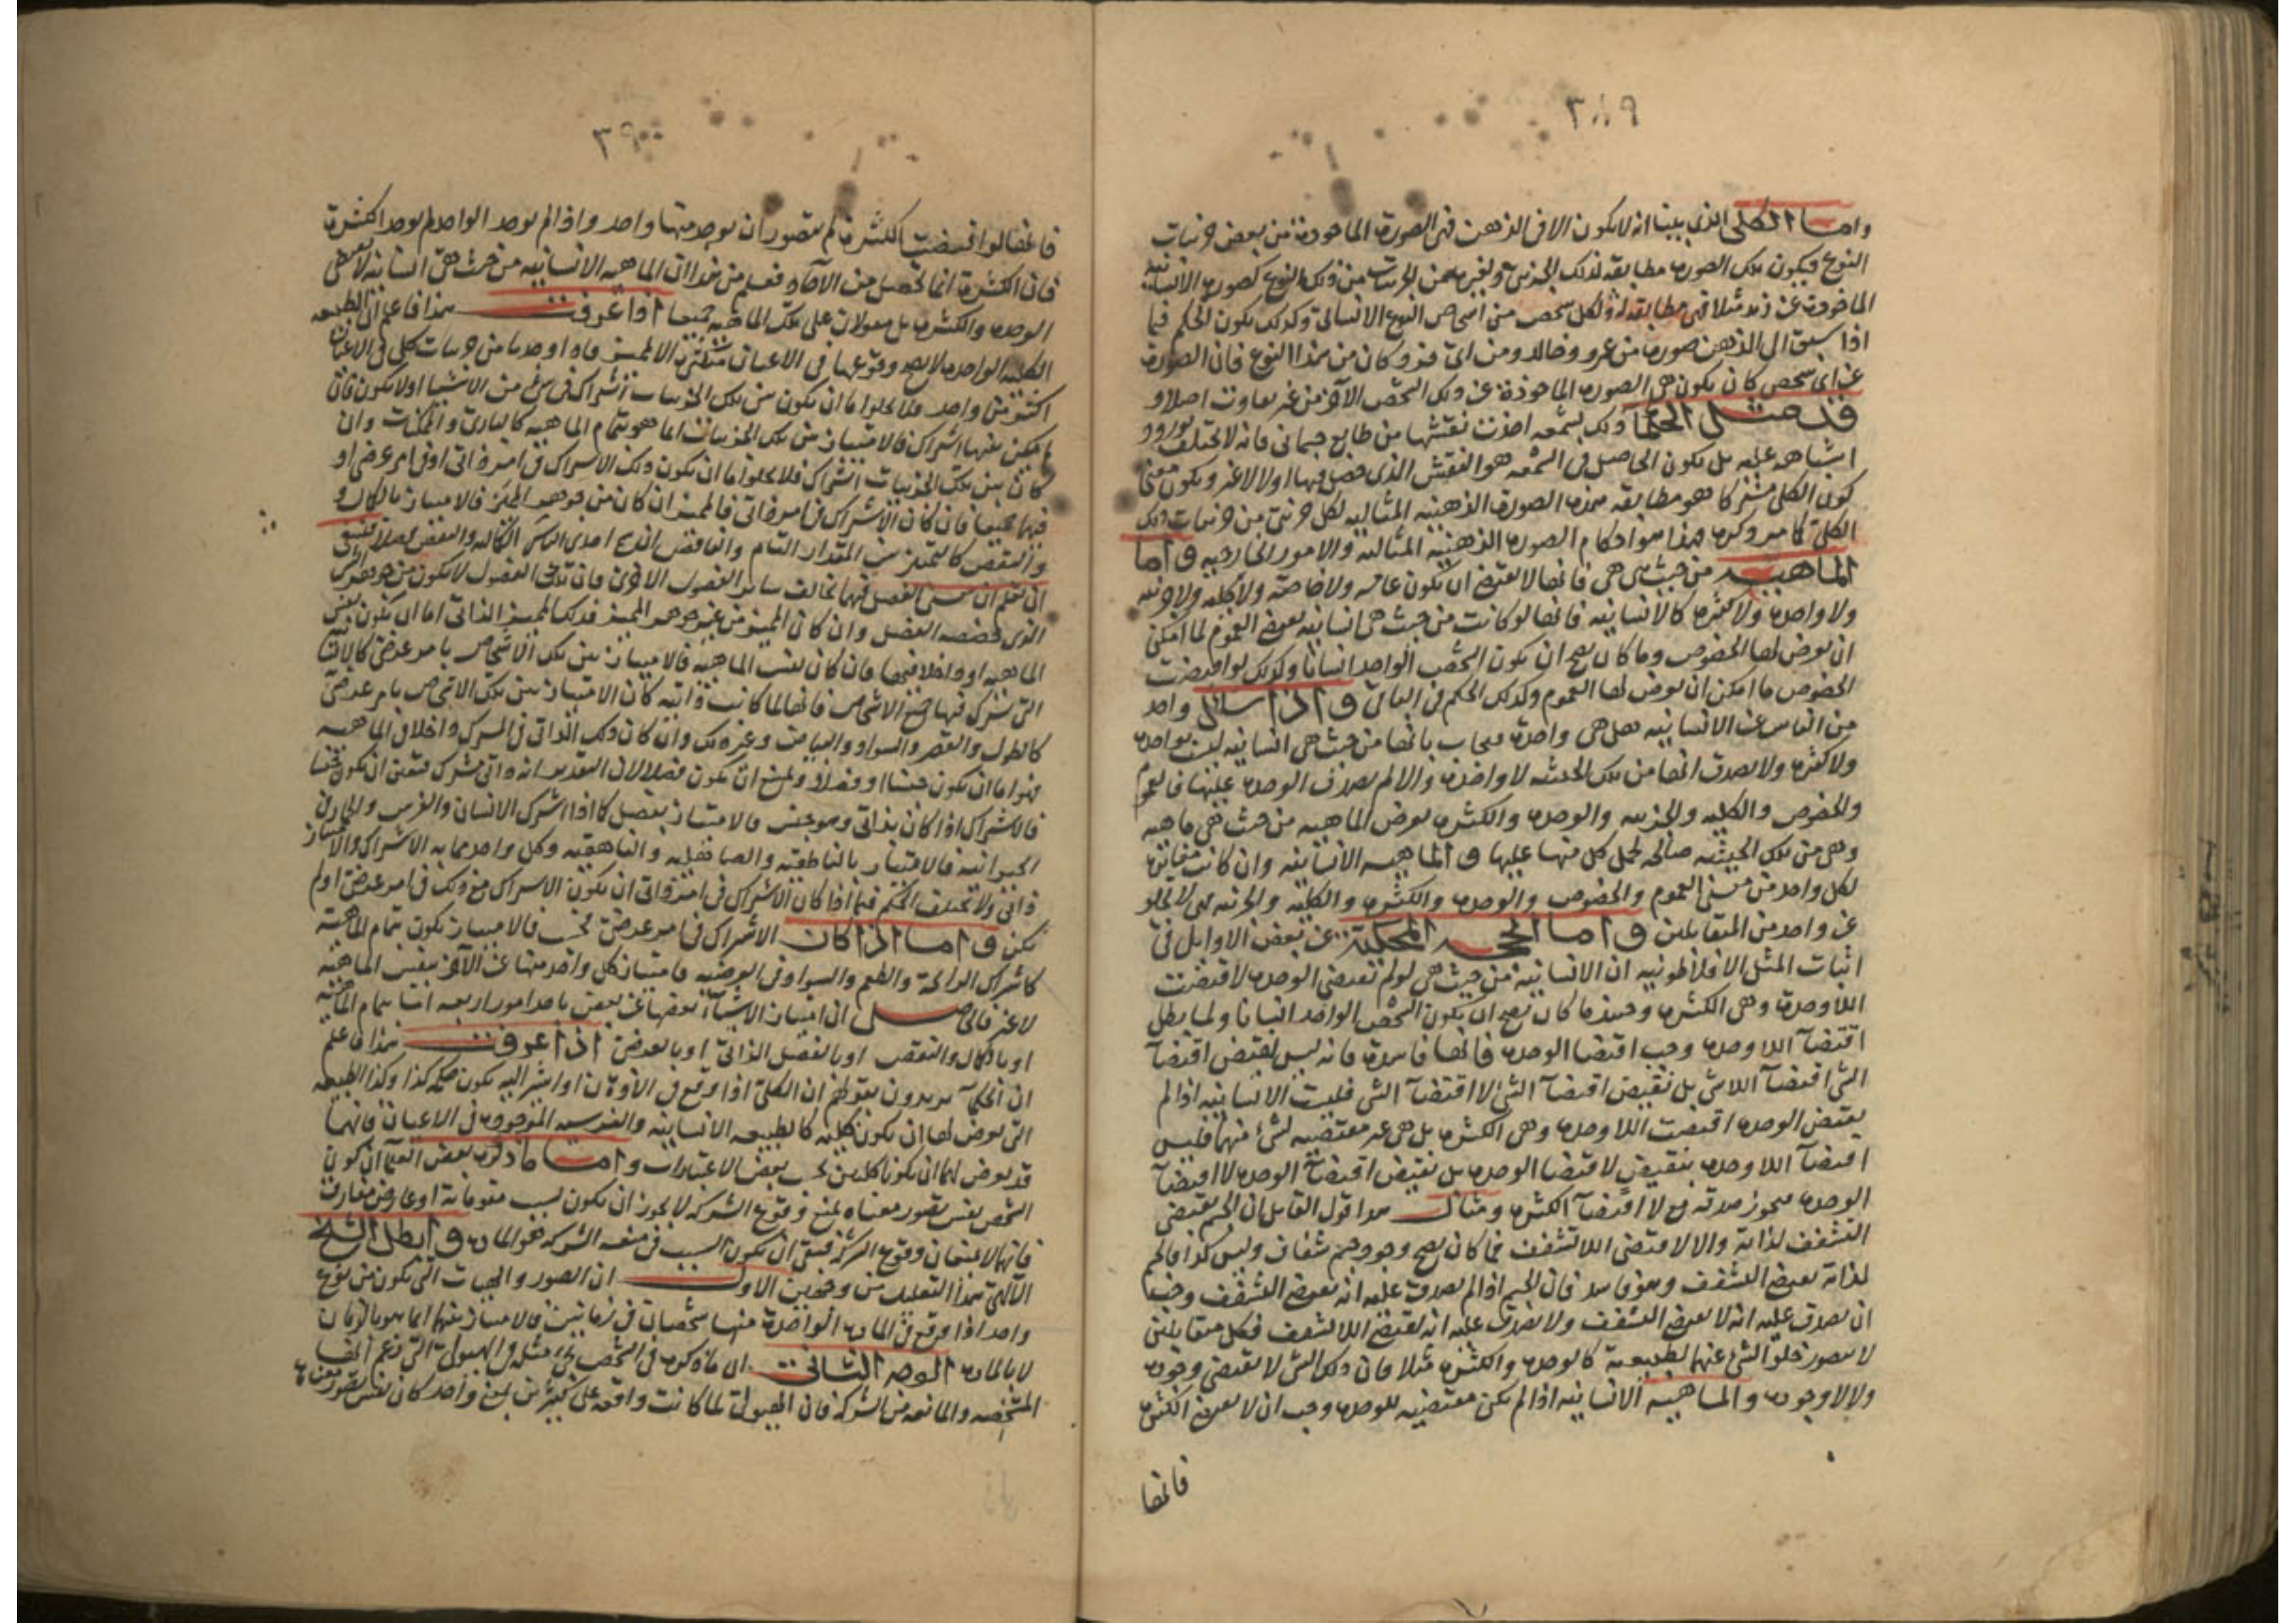 ٣٨٩
واما الكلى الذى بينا انه لا يكون الا فى الذهن فهى الصورة الماخوذة من بعض جزئيات
النوع فيكون تلك الصورة مطابقة لذلك الجزئى ولغيره من الجزئيات من ذلك النوع كصورة الانسانية
الماخوذة عن زيد مثلا فهى مطابقة له ولكل شخص من اشخاص النوع الانسانى وكذلك يكون الحكم فيما
اذا سبق الى الذهن صورة من عمرو وخالد ومن اى فرد كان من هذا النوع فان الصورة
عن اى شخص كان يكون هى الصورة الماخوذة عن ذلك الشخص الآخر من غير تفاوت اصلا و
قد مثل الحكما ذلك بشمعة اخذت نقشها من طابع جسمانى فانه لا يختلف بورود
اشباهه عليه بل يكون الحاصل فى الشمعة هو النقش الذى حصل فيها اولا لا غير ويكون معنى
كون الكلى مشتركا هو مطابقة هذه الصورة الذهنية المثالية لكل جزئى من جزئيات ذلك
الكلى كما مر ذكره هذا هو احكام الصورة الذهنية المثالية والامور الخارجية واما
الماهية من حيث هى هى فانها لا تقتضى ان تكون عامة ولا خاصة ولا كلية ولا جزئية
ولا واحدة ولا كثيرة كالانسانية فانها لو كانت من حيث هى انسانية تقتضى العموم لما امكن
ان يعرض لها الخصوص وما كان يصح ان يكون الشخص الواحد انسانا وكذلك لو اقتضت
الخصوص ما امكن ان يعرض لها العموم وكذلك الحكم فى الباقى واذا سال واحد
من الناس عن الانسانية هل هى واحدة فيجاب بانها من حيث هى انسانية ليست بواحدة
ولا كثيرة ولا يصدق انها من تلك الحيثية لا واحدة والا لم يصدق الوحدة عليها فالعموم
والخصوص والكلية والجزئية والوحدة والكثرة يعرض للماهية من حيث هى ماهية
وهى من تلك الحيثية صالحة لحمل كل منها عليها والماهية الانسانية وان كانت مغايرة
لكل واحد من العموم والخصوص والوحدة والكثرة والكلية والجزئية فهى لا تخلو
عن واحد من المتقابلين واما الحجة المحكية عن بعض الاوايل فى
اثبات المثل الافلاطونية ان الانسانية من حيث هى لو لم تقتضى الوحدة لاقتضت
اللاوحدة وهى الكثرة وحينئذ ما كان يصح ان يكون الشخص الواحد انسانا ولما بطل
اقتضآ اللاوحدة وجب اقتضا الوحدة فانها فاسدة فانه ليس نقيض اقتضآ
الشى اقتضآ اللاشى بل نقيض اقتضآ الشى لا اقتضآ الشى فليست الانسانية اذا لم
يقتض الوحدة اقتضت اللاوحدة وهى الكثرة بل هى غير مقتضية لشئ منهما فليس
اقتضآ اللاوحدة بنقيض لاقتضا الوحدة بل نقيض اقتضآ الوحدة لا اقتضآ
الوحدة فيجوز صدقه مع لا اقتضآ الكثرة ومثال هذا قول القايل ان الجسم يقتضى
التشفف لذاته والا لاقتضى اللاتشفف فما كان يصح وجود جسم شفاف وليس كذا فالجسم
لذاته يقتضى التشفف وهو فاسد فان الجسم اذا لم يصدق عليه انه يقتضى التشفف وجب
ان يصدق عليه انه لا يقتضى التشفف ولا يصدق عليه انه يقتضى اللاتشفف فكل متقابلين
لا يتصور خلو الشى عنهما لطبيعة كالوحدة والكثرة مثلا فان ذلك الشى لا يقتضى وجوده
ولا لاوجوده والماهية الانسانية اذا لم تكن مقتضية للوحدة وجب ان لا تقتضى الكثرة
فانها
٣٩٠
فانها لو اقتضت الكثرة لم يتصور ان يوجد منها واحد واذا لم يوجد الواحد لم يوجد الكثرة
فان الكثرة انما تحصل من الآحاد فعلم من هذا ان الماهية الانسانية من حيث هى انسانية لا تقتضى
الوحدة والكثرة بل مقولان على تلك الماهية جميعا اذا عرفت هذا فاعلم ان الطبيعة
الكلية الواحدة لا يصح وقوعها فى الاعيان الا لمميز فاذا وجدنا من جزئيات كلى فى الاعيان
اكثر من واحد فلا يخلوا اما ان يكون بين تلك الجزئيات اشتراك فى شئ من الاشيا او لا يكون فان
لم يكن بينها اشتراك فالامتياز بين تلك الجزئيات انما هو بتمام الماهية كالبارى والممكنات وان
كان بين تلك الجزئيات اشتراك فلا يخلوا اما ان يكون ذلك الاشتراك فى امر ذاتى او فى امر عرضى او
فيهما جميعا فان كان الاشتراك فى امر ذاتى فالمميز ان كان من جوهر المميز فالامتياز بالكمال و
والنقص كالتمييز بين المقدار التام والناقص
ان تعلم ان هذا الفصل فيهما يخالف ساير الفصول الاخرى فان تلك الفصول لا يكون من جوهر
الذى خصصه الفصل وان كان المميز من غير جوهر المميز فذلك المميز الذاتى اما ان يكون نفس
الماهية او داخلا فيها فان كان نفس الماهية فالامتياز بين تلك الاشخاص بامر عرضى كالانسانية
التى تشترك فيها جميع الاشخاص فانها لما كانت ذاتية كان الامتياز بين تلك الاشخاص بامر عرضى
كالطول والقصر والسواد والبياض وغير ذلك وان كان ذلك الذاتى المشترك داخلا فى الماهية
فهو اما ان يكون جنسا او فصلا ويمتنع ان يكون فصلا لان التقدير انه ذاتى مشترك فتعين ان يكون جنسا
فالاشتراك اذا كان بذاتى وهو جنس فالامتياز بفصل كما اذا اشترك الانسان والفرس والحمار فى
الحيوانية فالامتياز بالناطقية والصاهلية والناهقية وكل واحد مما به الاشتراك والامتياز
ذاتى ولا يختلف الحكم فيما اذا كان الاشتراك فى امر ذاتى ان يكون الاشتراك مع ذلك فى امر عرضى او لم
يكن واما اذا كان الاشتراك فى امر عرضى فحسب فالامتياز يكون بتمام الماهية
كاشتراك الرائحة والطعم والسواد فى العرضية فامتياز كل واحد منها عن الآخر بنفس الماهية
لا غير فالحاصل ان امتياز الاشيآء بعضها عن بعض باحد امور اربعة اما بتمام الماهية
او بالكمال والنقص او بالفصل الذاتى او بالعرضى اذا عرفت هذا فاعلم
ان الحكمآ يريدون بقولهم ان الكلى اذا وقع فى الاذهان او اشير اليه يكون حكمه كذا وكذا الطبيعة
التى يعرض لها ان يكون كلية كالطبيعة الانسانية والفرسية الموجودة فى الاعيان فانهما
قد يعرض لهما ان يكونا كليين بحسب بعض الاعتبارات واما ما ذكره بعض العلمآ ان كون
الشخص نفس تصور معناه يمنع وقوع الشركة لا يجوز ان يكون بسبب مقوماته او عارض مفارق
فانهما لا يمنعان وقوع الشركة فبقى ان يكون السبب فى منعه الشركة هو المادة وابطل الشيخ
الآلهى هذا التعليل من وجهين الاول ان الصور والهيئات التى تكون من نوع
واحد اذا وقع فى المادة الواحدة منها شخصان فى زمانين فالامتياز بينهما انما هو بالزمان
لا بالمادة الوجه الثانى ان ما ذكره فى الشخص يجئ مثله فى الهيولى التى زعم انها
المشخصة والمانعة من الشركة فان الهيولى لما كانت واقعة على كثيرين بمعنى واحد كان نفس تصور معناها